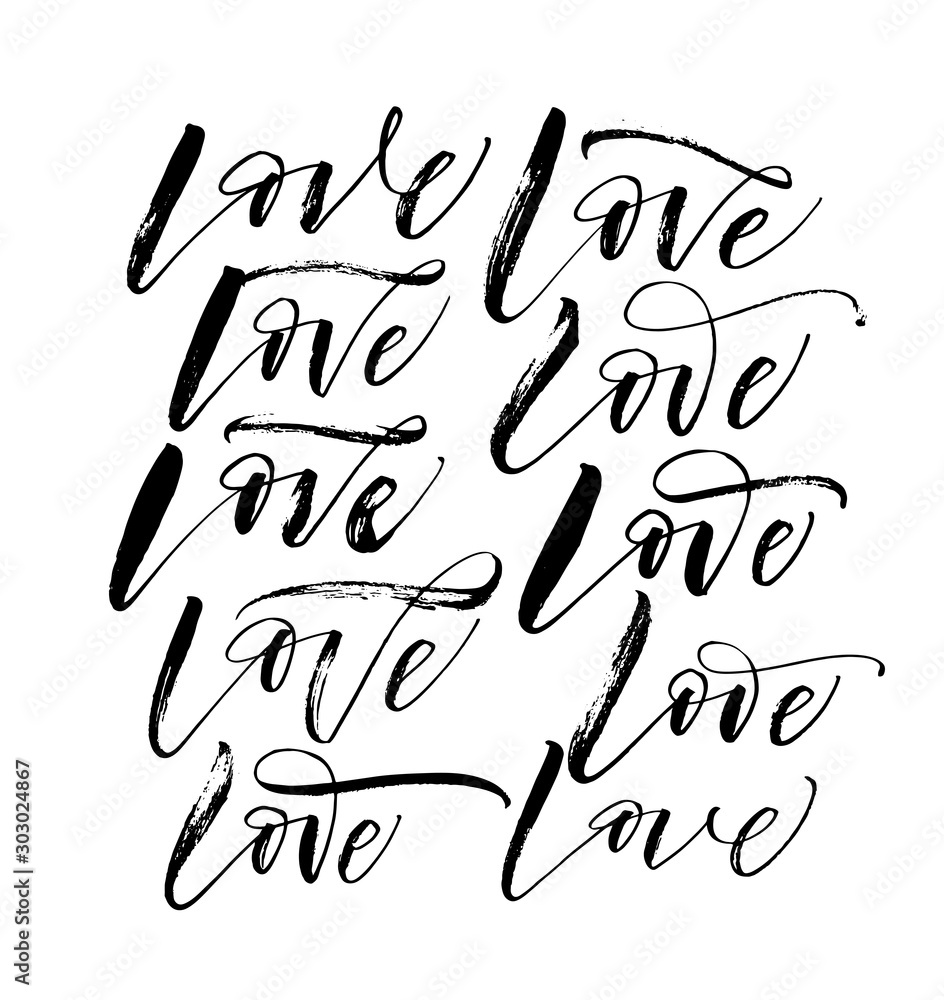 love love
love love
love love
love love
love love
Adobe Stock | #303024867